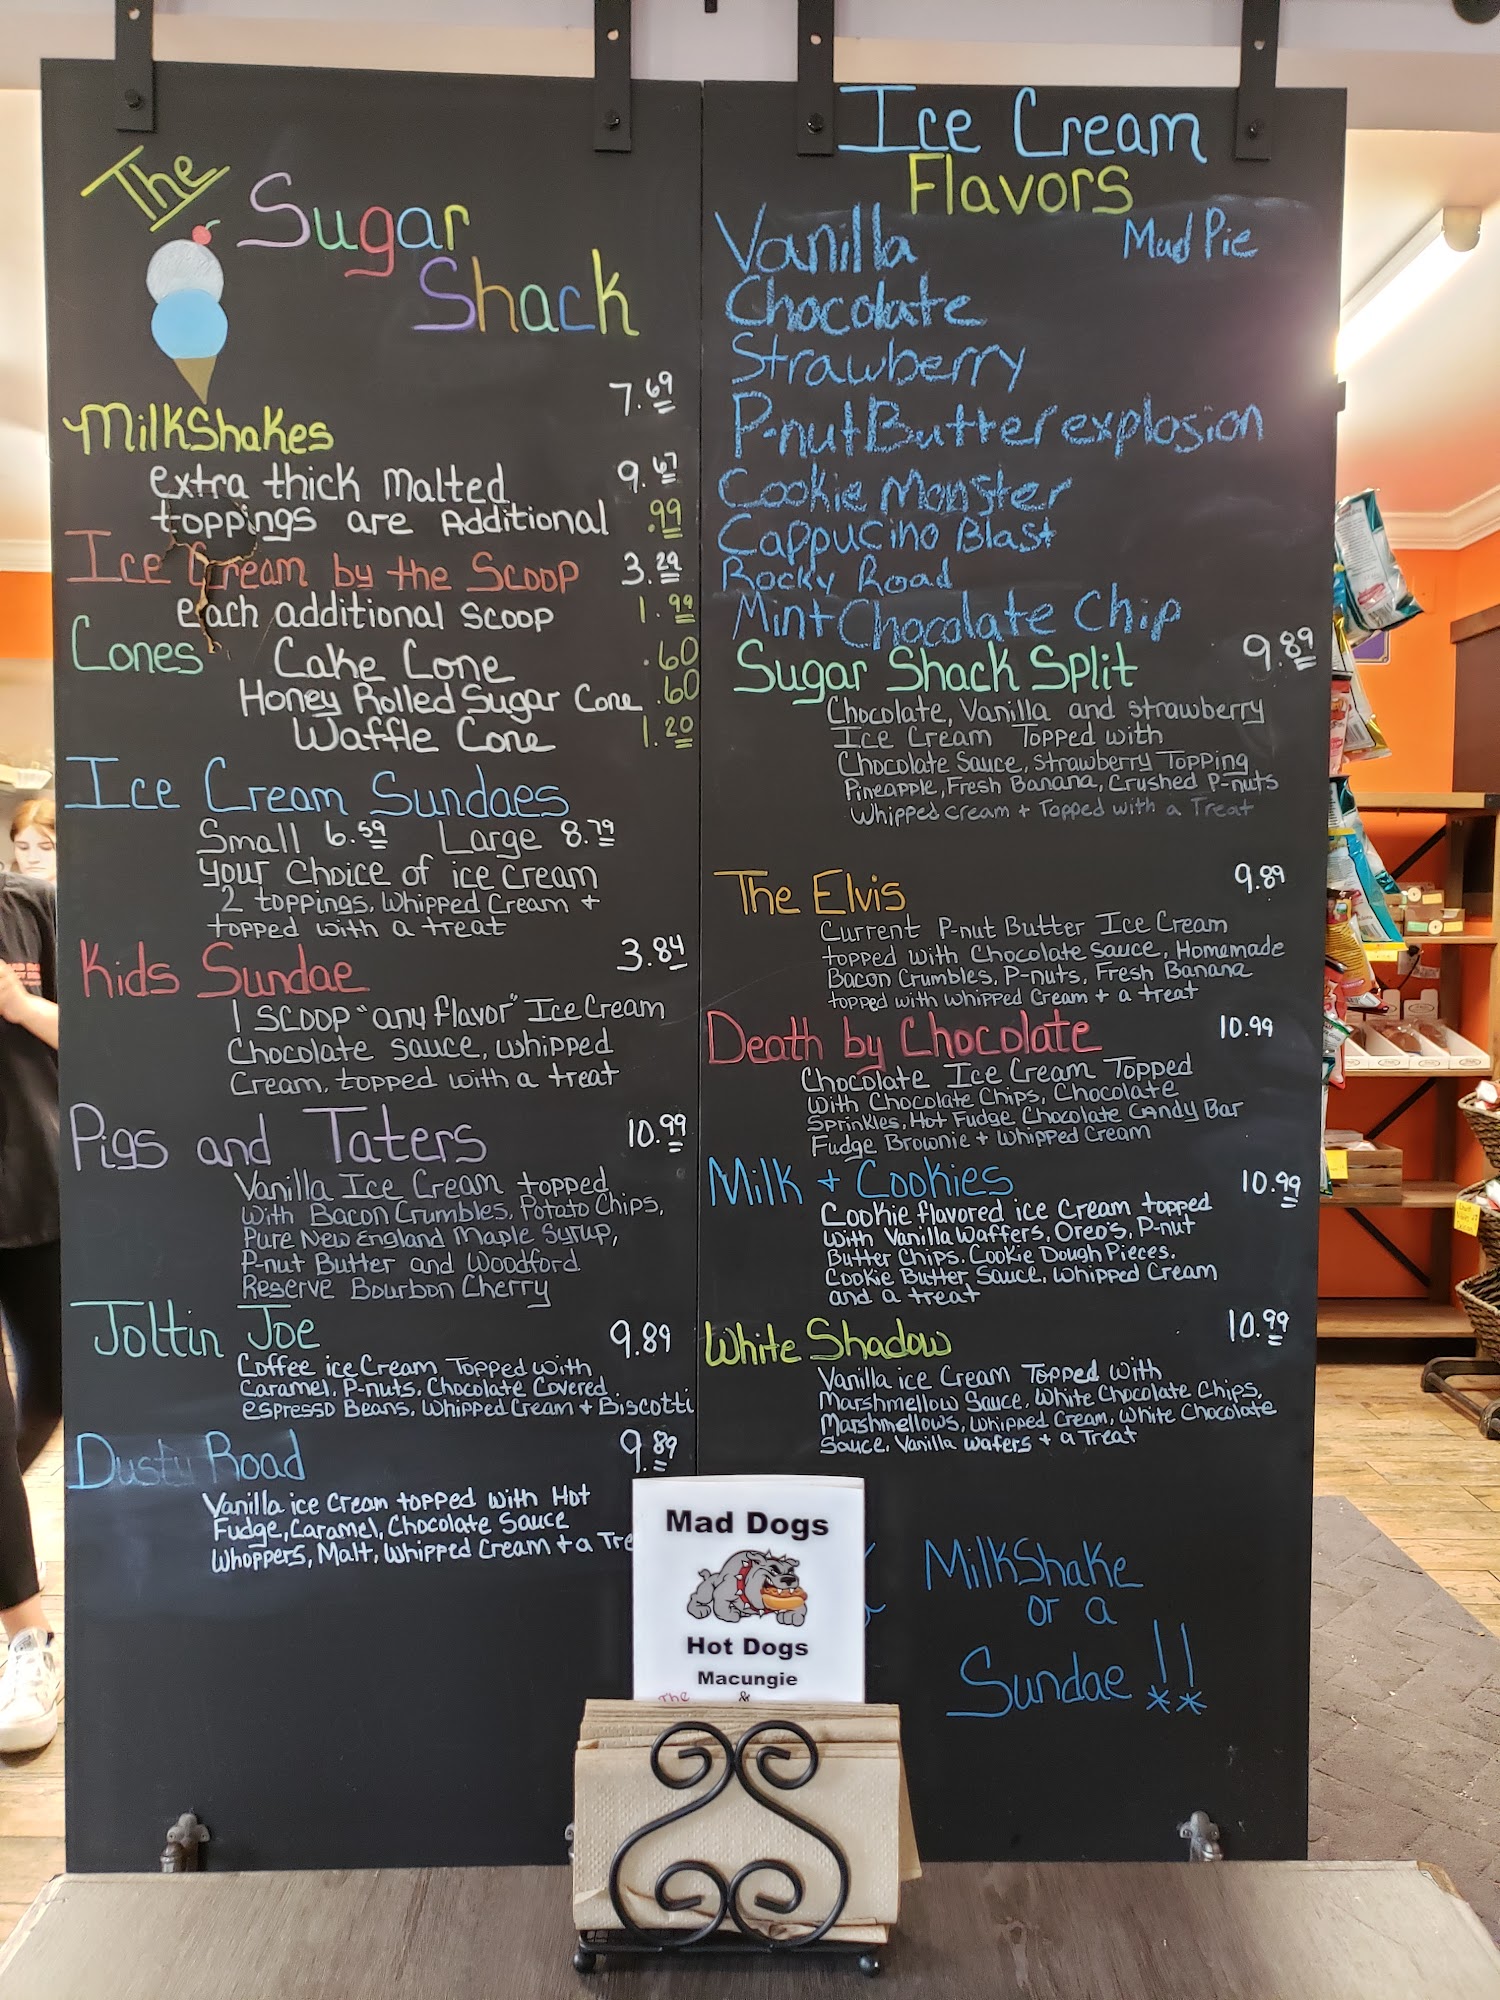 The
Sugar
Shack
MilkShakes 7.69
extra thick Malted 9.67
toppings are Additional .99
Ice Cream by the Scoop 3.29
each additional scoop 1.99
Cones Cake Cone .60
Honey Rolled Sugar Cone .60
Waffle Cone 1.20
Ice Cream Sundaes
Small 6.59 Large 8.79
your choice of ice cream
2 toppings, Whipped Cream +
topped with a treat
Kids Sundae 3.84
1 scoop "any flavor" Ice Cream
Chocolate sauce, whipped
Cream, topped with a treat
Pigs and Taters 10.99
Vanilla Ice Cream topped
with Bacon Crumbles, Potato Chips,
Pure New England Maple Syrup,
P-nut Butter and Woodford
Reserve Bourbon Cherry
Joltin Joe 9.89
Coffee ice Cream Topped with
Caramel, P-nuts, Chocolate Covered
espresso Beans, Whipped Cream + Biscotti
Dusty Road 9.89
Vanilla ice Cream topped with Hot
Fudge, Caramel, Chocolate Sauce
Whoppers, Malt, Whipped Cream + a Tre
Ice Cream
Flavors
Vanilla Mud Pie
Chocolate
Strawberry
P-nut Butter explosion
Cookie Monster
Cappucino Blast
Rocky Road
Mint Chocolate Chip
Sugar Shack Split 9.89
Chocolate, Vanilla and strawberry
Ice Cream Topped with
Chocolate Sauce, Strawberry Topping
Pineapple, Fresh Banana, Crushed P-nuts
Whipped cream + Topped with a Treat
The Elvis 9.89
Current P-nut Butter Ice Cream
topped with Chocolate sauce, Homemade
Bacon Crumbles, P-nuts, Fresh Banana
topped with whipped Cream + a treat
Death by Chocolate 10.99
Chocolate Ice Cream Topped
with Chocolate Chips, Chocolate
Sprinkles, Hot Fudge, Chocolate Candy Bar
Fudge Brownie + Whipped Cream
Milk + Cookies 10.99
Cookie flavored ice Cream topped
with Vanilla Waffers, Oreo's, P-nut
Butter Chips, Cookie Dough Pieces,
Cookie Butter Sauce, Whipped Cream
and a treat
White Shadow 10.99
Vanilla ice Cream Topped with
Marshmellow Sauce, White Chocolate Chips,
Marshmellows, Whipped Cream, White Chocolate
Sauce, Vanilla Wafers + a Treat
MilkShake
or a
Sundae !!
**
Mad Dogs
Hot Dogs
Macungie
&
The